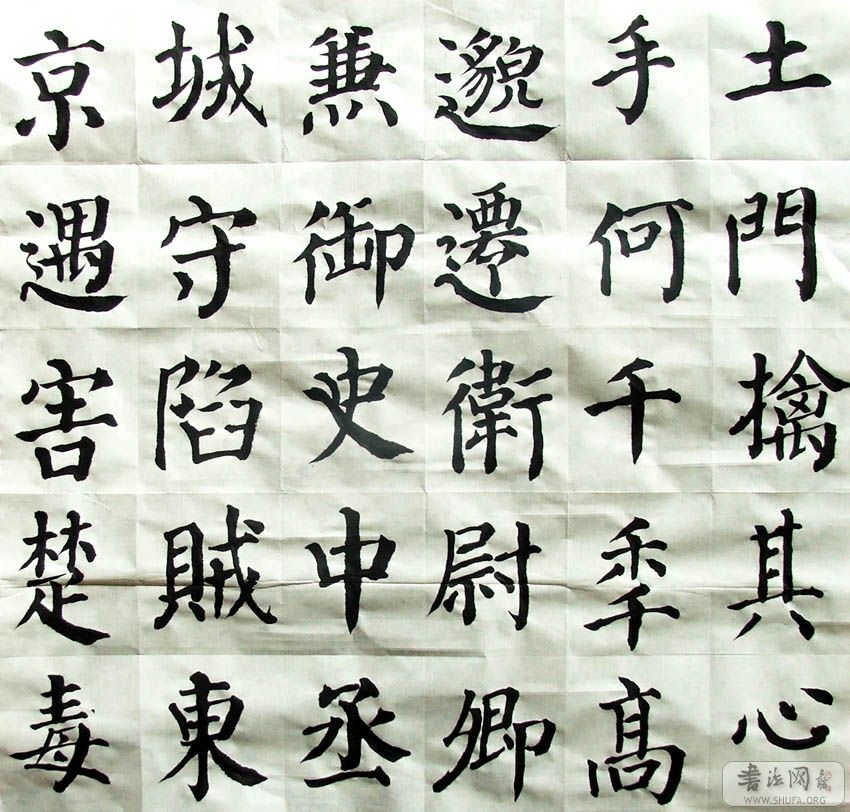 土門擒其心
手何千秊高
邈遷衛尉卿
兼御史中丞
城守陷賊東
京遇害楚毒
書法网
WWW.SHUFA.ORG